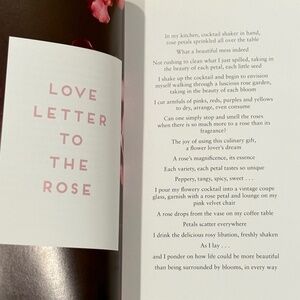 LOVE
LETTER
TO
THE
ROSE
In my kitchen, cocktail shaker in hand,
rose petals sprinkled all over the table
What a beautiful mess indeed
Not rushing to clean what I just spilled, taking in
the beauty of each petal, each little seed
I shake up the cocktail and begin to envision
myself walking through a luscious rose garden,
taking in the beauty of each bloom
I cut armfuls of pinks, reds, purples and yellows
to dry, arrange, even consume
Can one simply stop and smell the roses
when there is so much more to a rose than its
fragrance?
The joy of using this culinary gift,
a flower lover's dream
A rose's magnificence, its essence
Each variety, each petal tastes so unique
Peppery, tangy, spicy, sweet . . .
I pour my flowery cocktail into a vintage coupe
glass, garnish with a rose petal and lounge on my
pink velvet chair
A rose drops from the vase on my coffee table
Petals scatter everywhere
I drink the delicious rosy libation, freshly shaken
As I lay . . .
and I ponder on how life could be more beautiful
than being surrounded by blooms, in every way